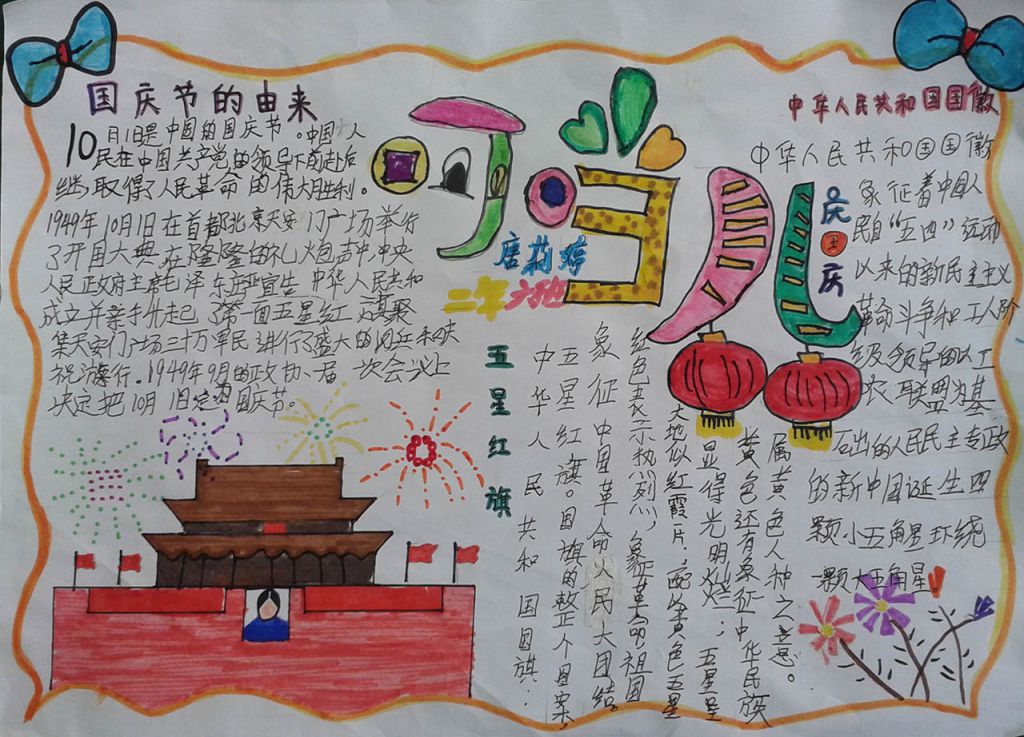 国庆节的由来
10月1日是中国的国庆节。中国人
民在中国共产党的领导下前赴后
继,取得了人民革命的伟大胜利。
1949年10月1日在首都北京天安门广场举行
了开国大典在隆隆的礼炮声中,中央
人民政府主席毛泽东严宣告中华人民共和
成立并亲手升起了第一面五星红旗聚
集天安门广场三十万军民进行了盛大的阅兵和庆
祝游行。1949年9月的政协一届一次会议上
决定把10月1日定为国庆节。
唐莉婷
二年六班
庆国庆
五星红旗
中华人民共和国国旗:
五星红旗。国旗的整个图案,
象征中国革命人民大团结
红色表示热烈,象征革命,祖国
大地似红霞片,以黄色五星
显得光明灿烂;五星呈
黄色还有象征中华民族
属黄色人种之意。
中华人民共和国国徽
中华人民共和国国徽
象征着中国人
民自“五四”运动
以来的新民主主义
革命斗争和工人阶
级领导的以工
农联盟为基
石出的人民民主专政
的新中国诞生四
颗小五角星环绕
一颗大五角星!